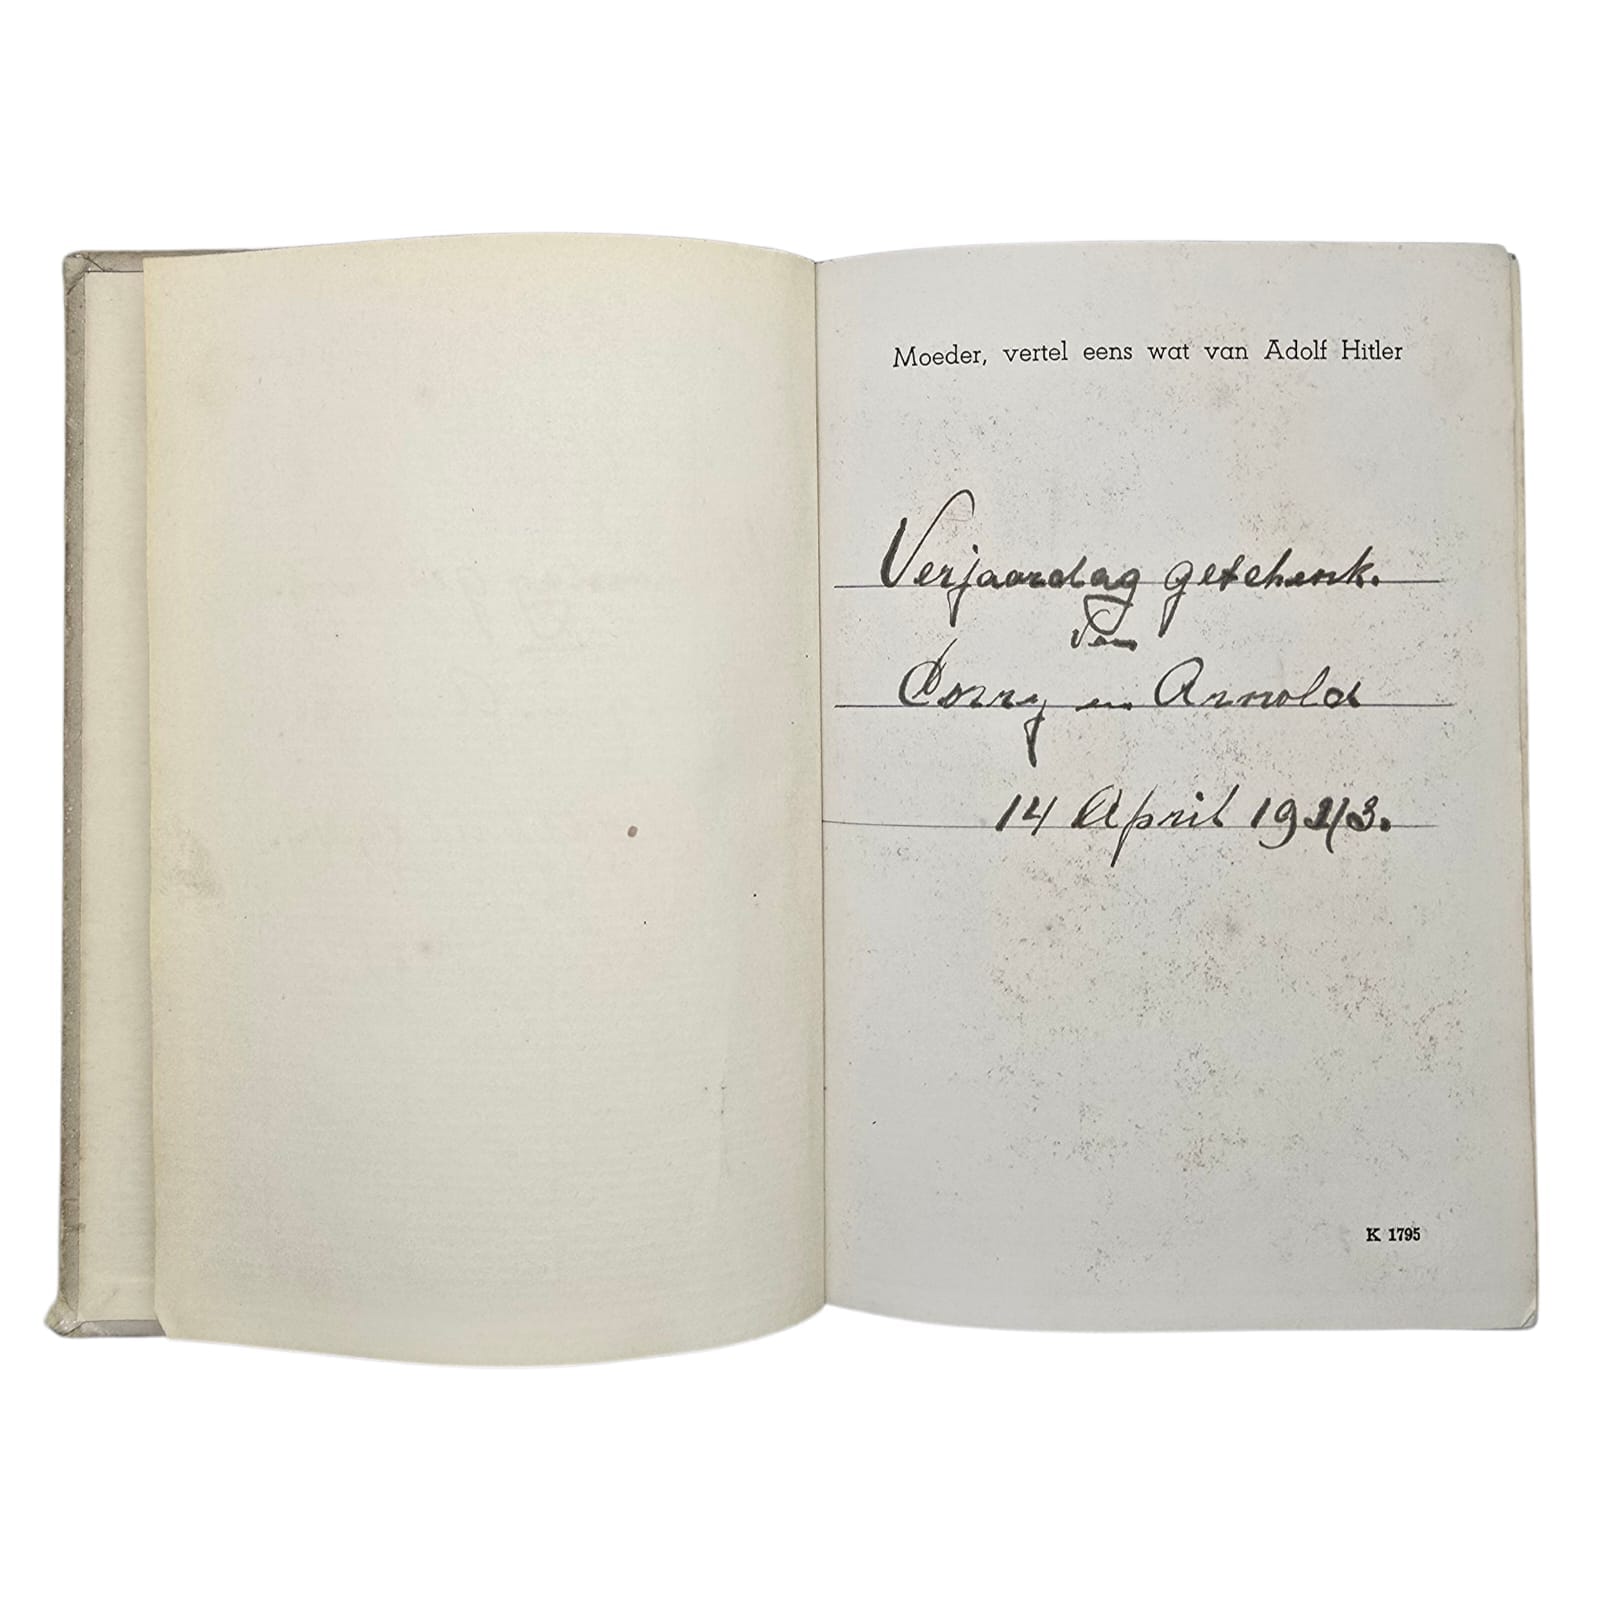 Moeder, vertel eens wat van Adolf Hitler
Verjaardag geschenk.
Van
Corry en Arnold
14 April 1943.
K 1795